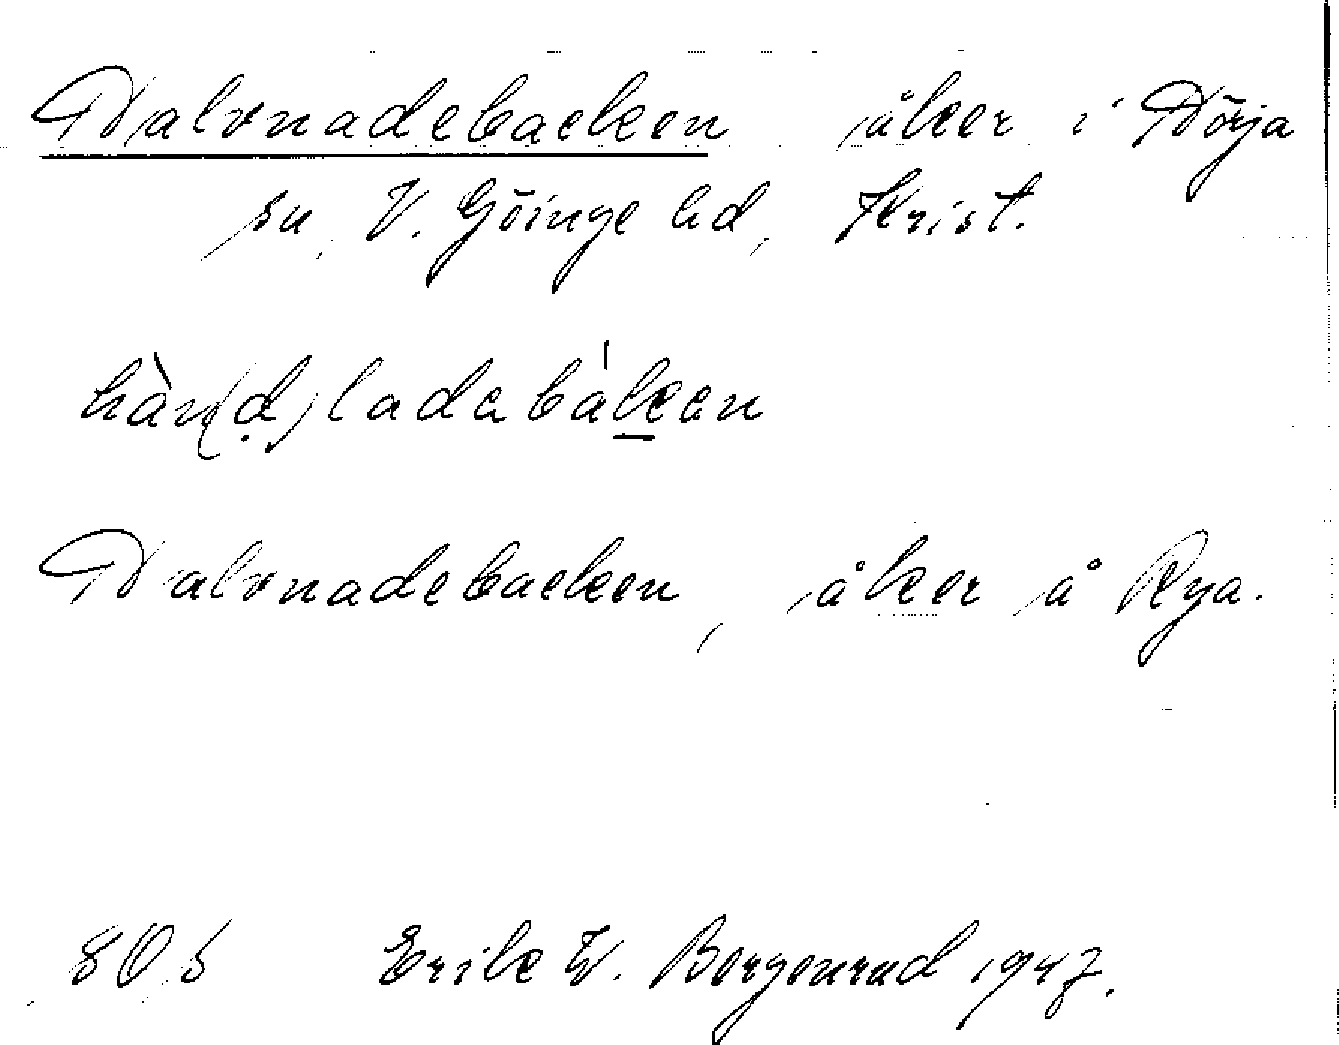 Halvnadebacken åker i Hörja
sn, V. Göinge hd, Krist.
hàn(ḍ)ladabàkan
Halvnadebacken, åker å Rya.
Erik W. Bergenrud 1947.